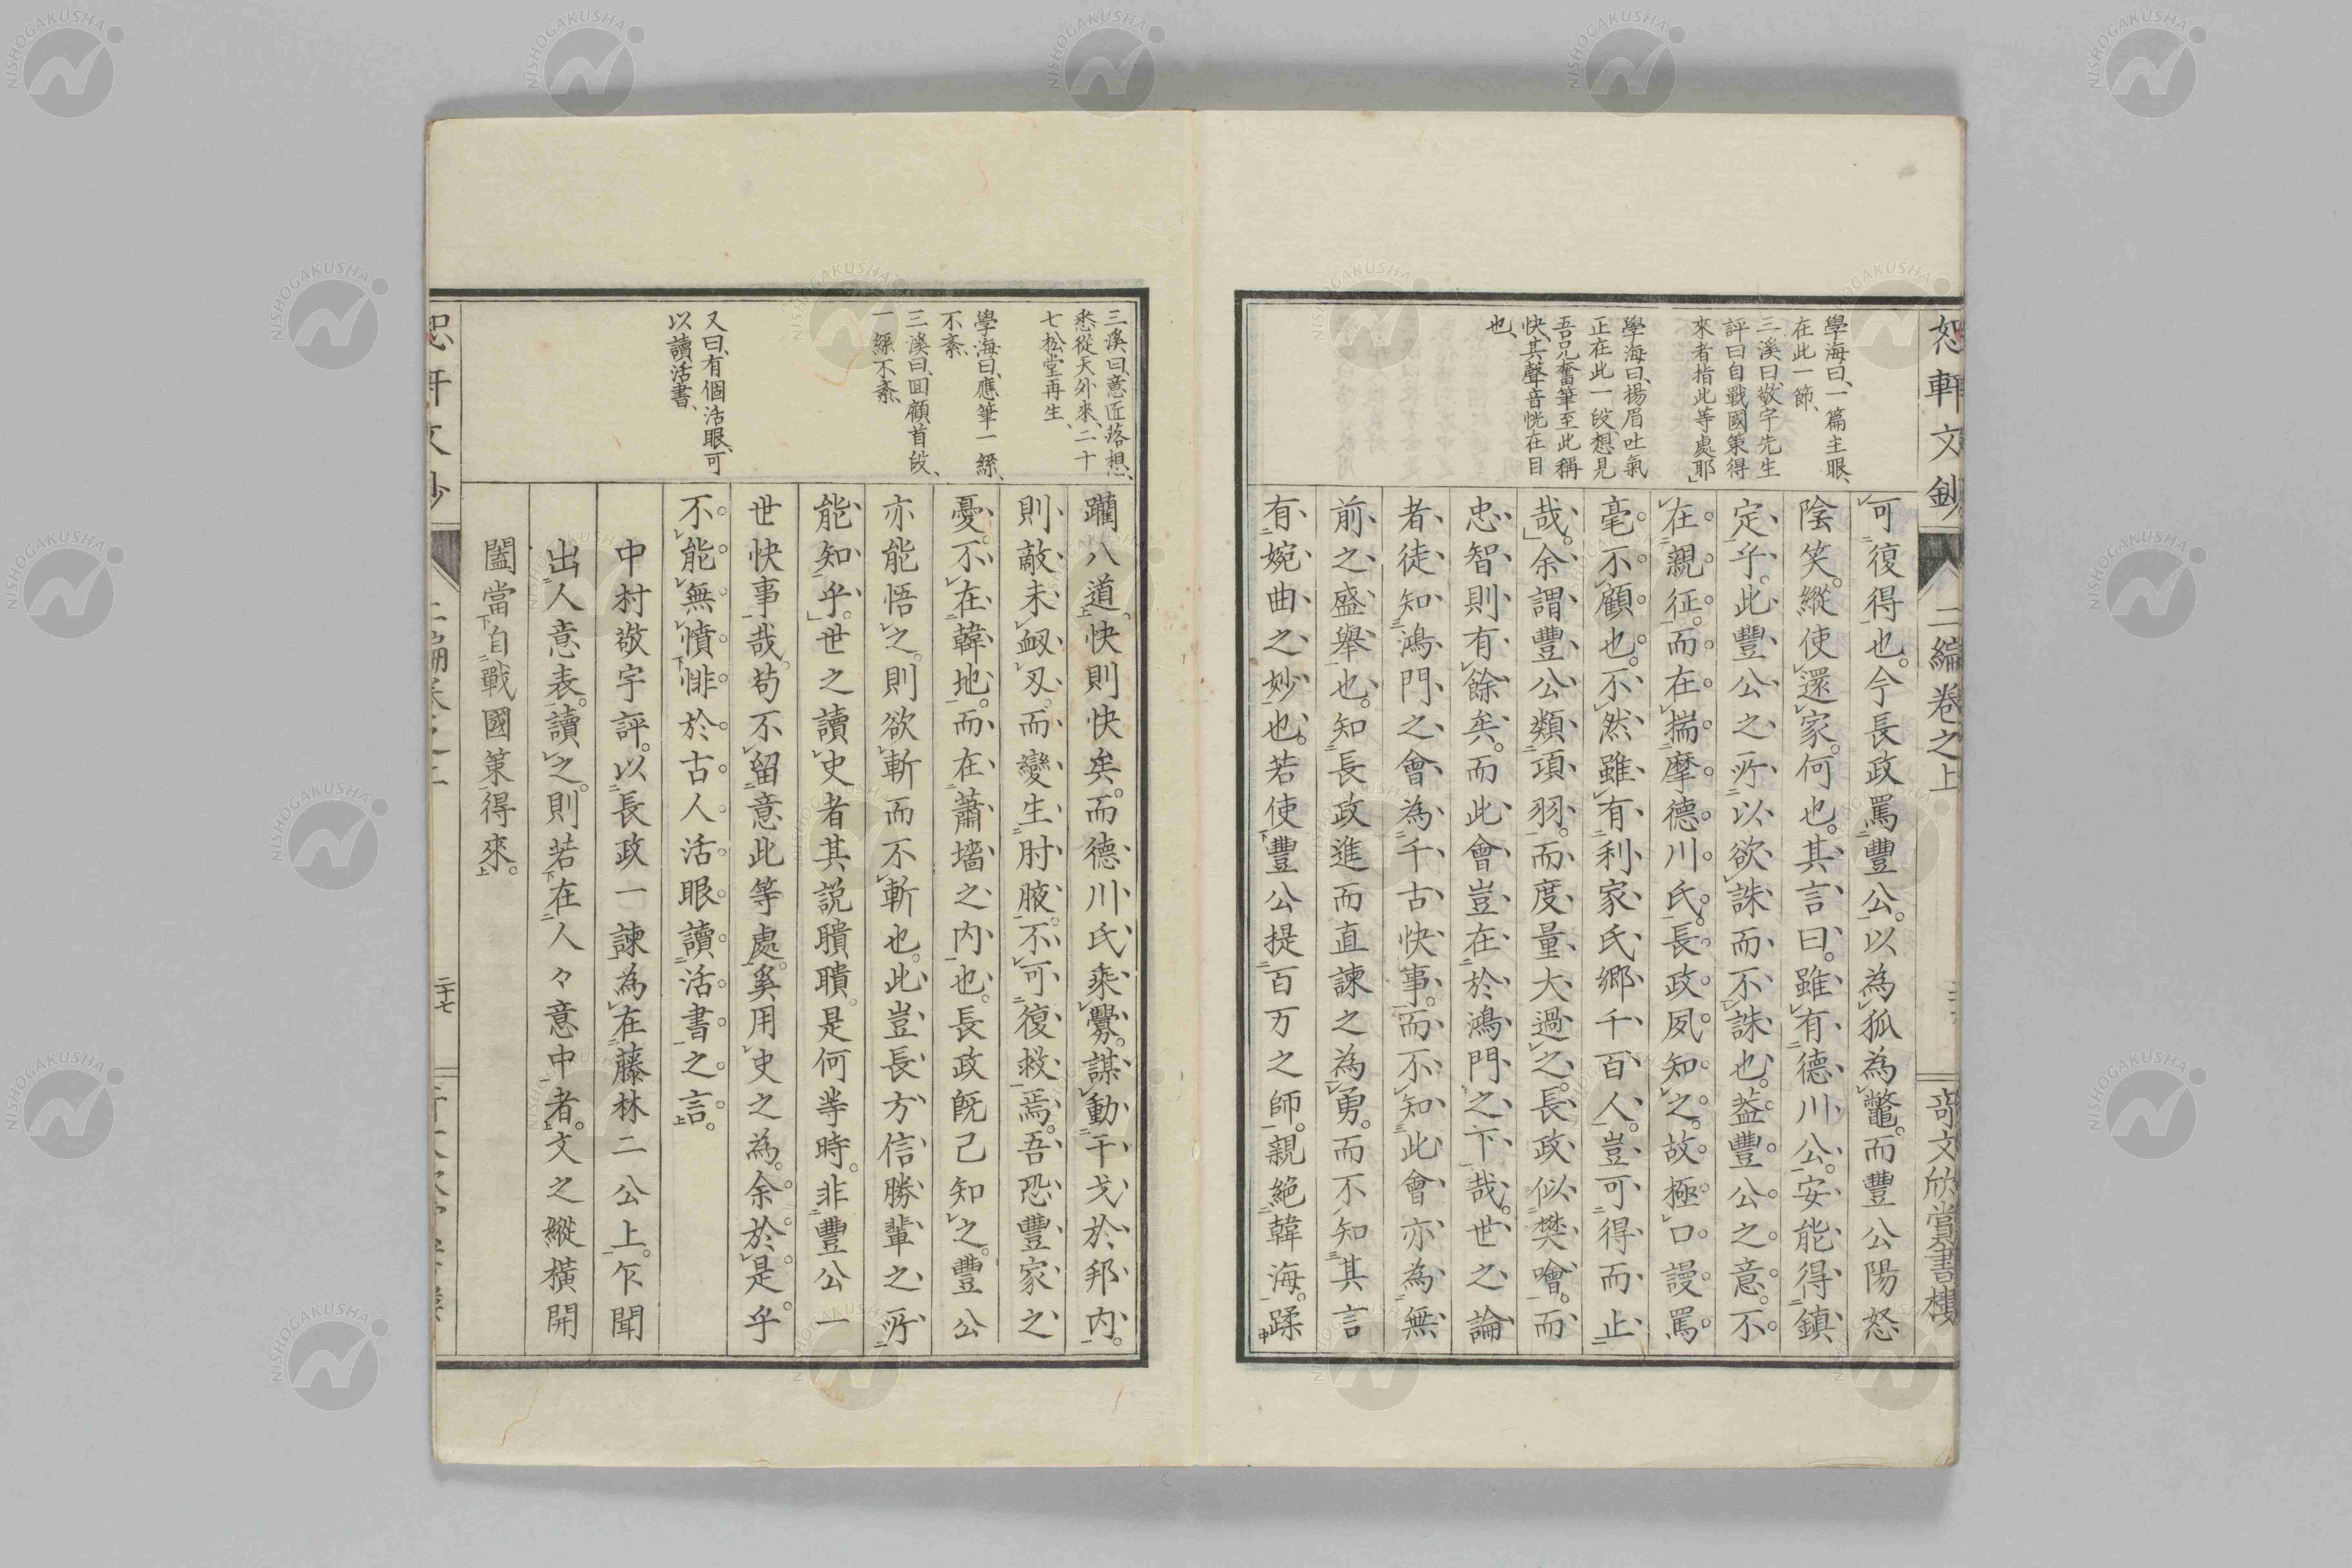 恕軒文鈔 二編卷之上 奇文欣賞書樓
學海曰、一篇主眼、
在此一節、
三溪曰、敬宇先生
評曰自戰國策得
來者指此等處耶」
學海曰、楊眉吐氣
正在此一段、想見
吾兄奮筆至此稱
快、其聲音恍在目
也、
可復得也。今長政罵豐公。以為狐為鼈。而豐公陽怒
陰笑。縱使還家。何也。其言曰。雖有德川公。安能得鎮
定乎。此豐公之所以欲誅而不誅也。蓋豐公之意。不
在親征。而在揣摩德川氏。長政夙知之。故極口謾罵
毫不顧也。不然雖有利家氏鄉千百人。豈可得而止
哉。」余謂豐公類項羽。而度量大過之。長政似樊噲。而
忠智則有餘矣。而此會豈在於鴻門之下哉。世之論
者、徒知鴻門之會為千古快事。而不知此會亦為無
前之盛舉也。知長政進而直諫之為勇。而不知其言
有婉曲之妙也。若使豐公提百万之師。親絕韓海。蹂
三溪曰、意匠落想、
悉從天外來、二十
七松堂再生、
學海曰、應筆一絲、
不紊、
三溪曰、回顧首段、
一絲不紊、
又曰、有個活眼、可
以讀活書、
躪八道。快則快矣。而德川氏乘釁。謀動干戈於邦內。
則敵未衂刄。而變生肘腋。不可復救焉。吾恐豐家之
憂。不在韓地。而在蕭墻之內也。長政既已知之。豐公
亦能悟之。則欲斬而不斬也。此豈長方信勝輩之所
能知乎。」世之讀史者其說聵聵。是何等時。非豐公一
世快事哉。苟不留意此等處。奚用史之為。余於是乎
不能無憤悱於古人活眼讀活書之言。
中村敬宇評。以長政一諫為在藤林二公上。乍聞
出人意表。讀之。則若在人々意中者。文之縱橫開
闔當自戰國策得來。
二十七
NISHOGAKUSHA